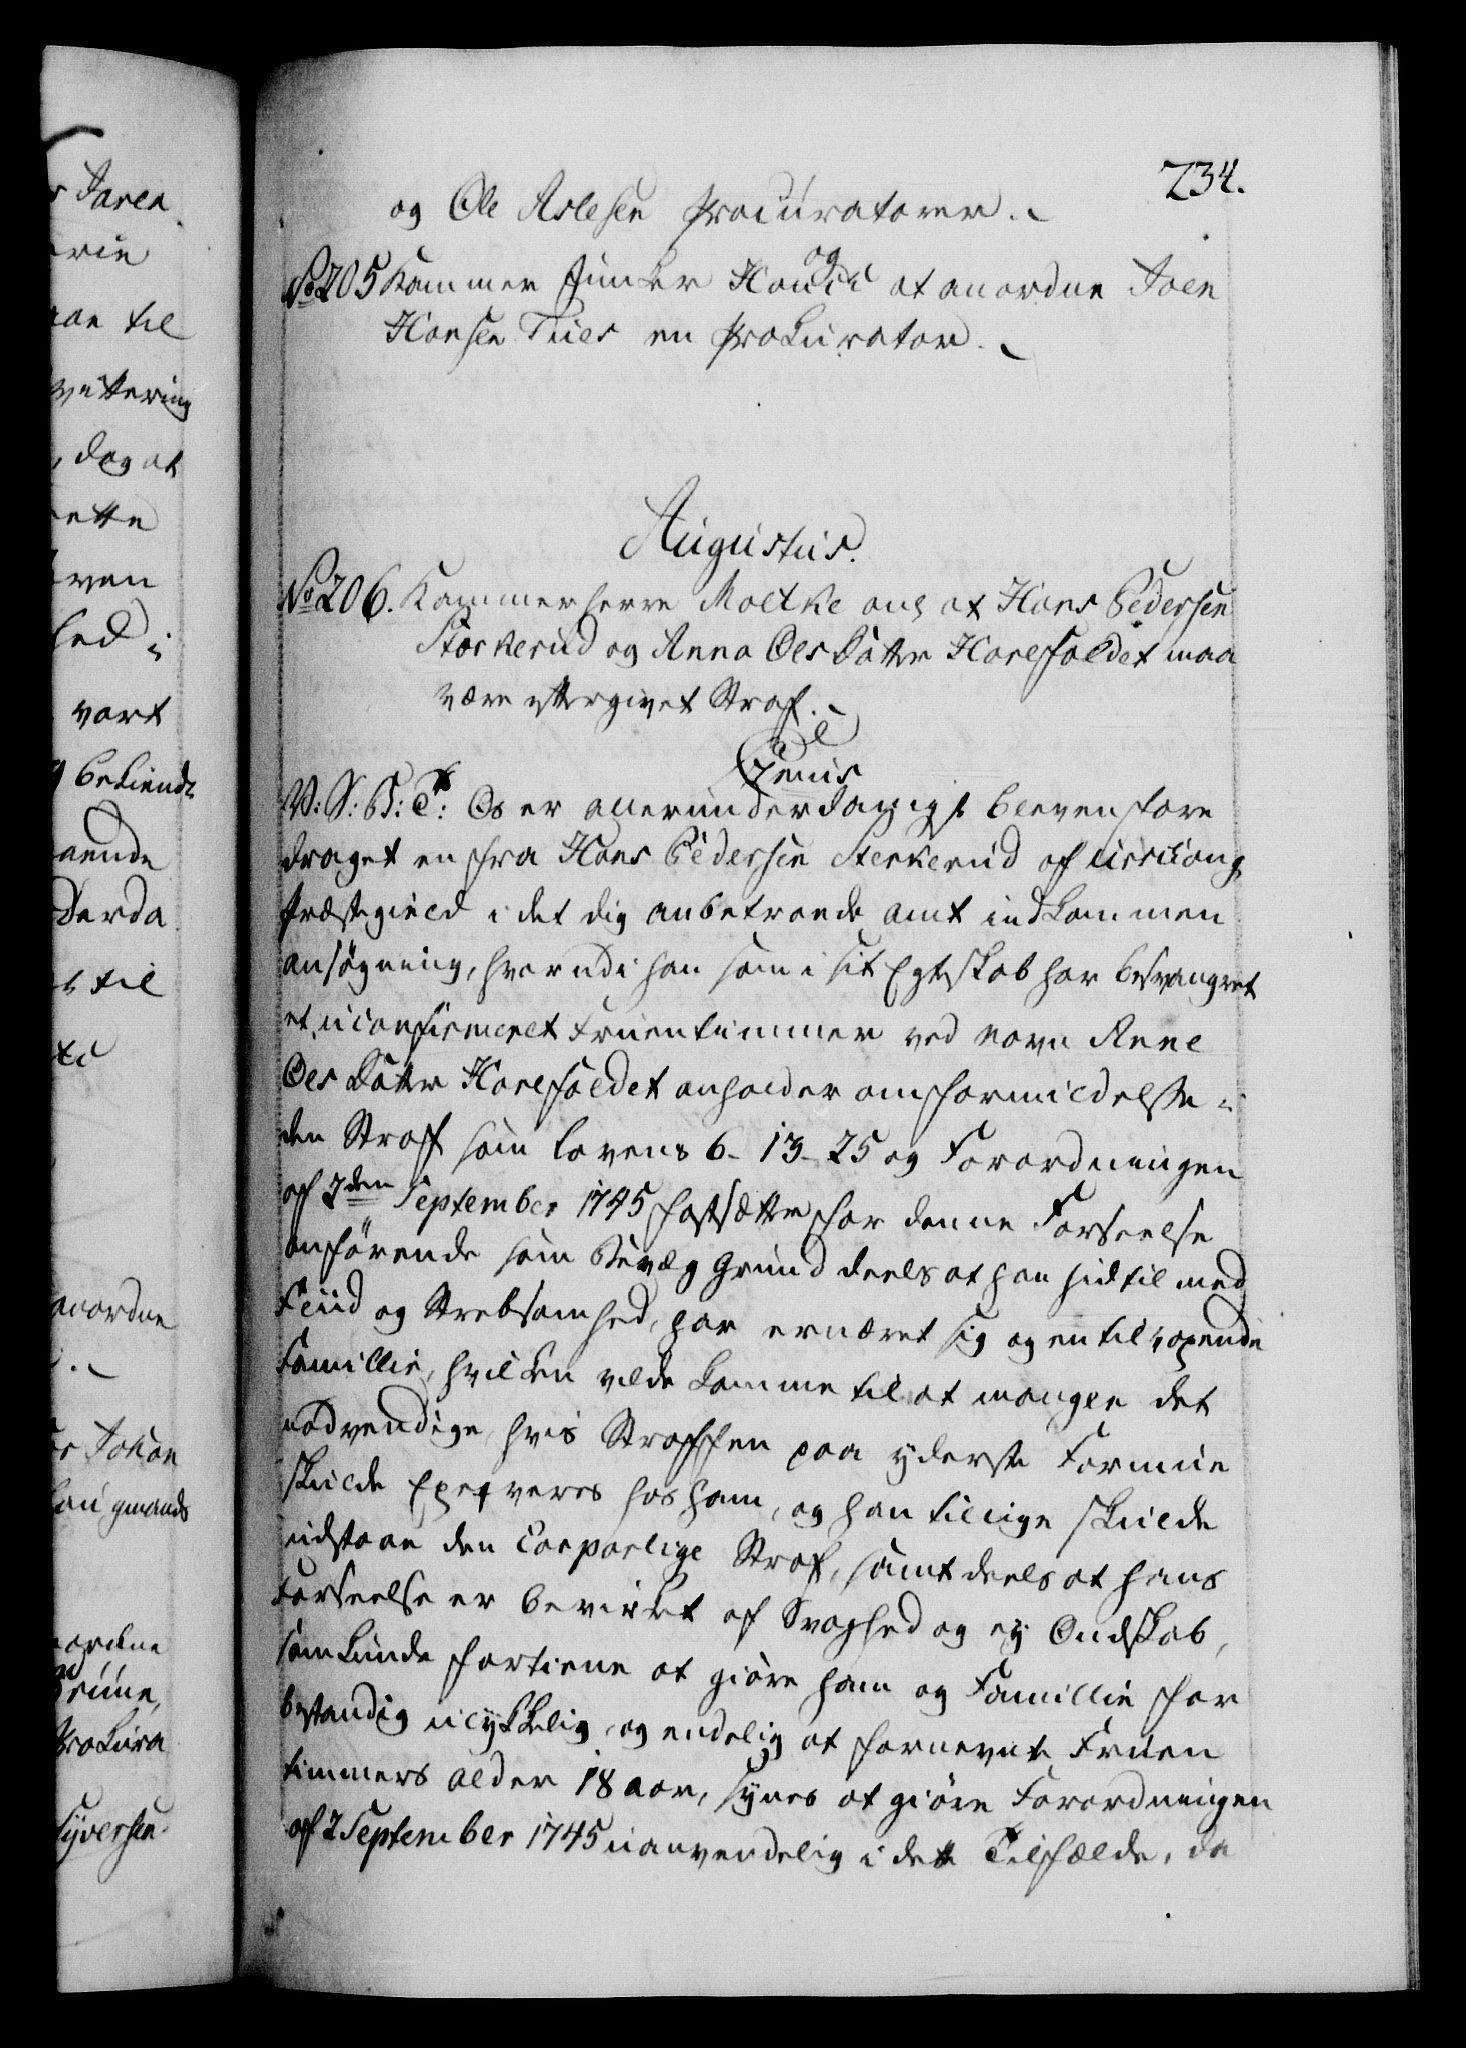 234.
og Ole Aslesen Procuratorer.
No 205 Kammer Junker Hauch og at anordne Joen
Hansen Tues en Prokurator.
Augustus.
No 206. Kammerherre Moltke ang at Hans Pedersen
Størkerud og Anna Ols Datter Harefaldet maa
være eftergivet Straf.
V: S: G: T: Os er allerunderdanigst bleven fore
draget en fra Hans Pedersen Sterkerud af Urskoug
Præstegield i det dig anbetroede amt indkommen
ansøgning, hvorudi han som i sit Egteskab har besvangret
et uconfirmeret Fruentimmer ved navn Anne
Ols Datter Harefaldet anholder om formildelse i
den Straf som Lovens 6-13-25 og Forordningen
af 2den September 1745 fastsætter for denne Forseelse
anförende som Bevæg Grund deels at han hidtil med
Fliid og Strebsomhed, har ernæret sig og en tilvoxende
Famillie, hvilken vilde komme til at mangle det
nødvendige, hvis Straffen paa yderste Formue
skulde Exeqveres hos ham, og han tillige skulde
udstaae den Corporlige Straf, samt deels at hans
Forseelse er bevirket af Svaghed og ey Ondskab,
som kunde fortiene at giøre ham og Famillie for
bestandig ulykkelig, og endelig at fornevnte Fruen
timmers alder 18 aar, synes at giöre Forordningen
af 2 September 1745 uanvendelig i dette Tilfælde, da